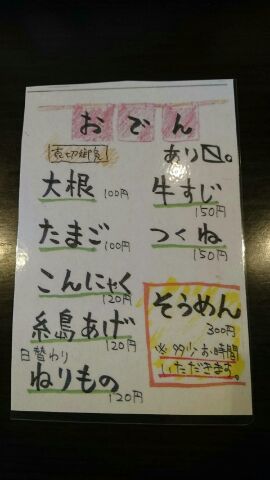 おでん
売切御免
あり〼。
大根 100円
牛すじ 150円
たまご 100円
つくね 150円
こんにゃく 120円
糸島あげ 120円
日替わり
ねりもの 120円
そうめん
300円
※ 少々お時間
いただきます。